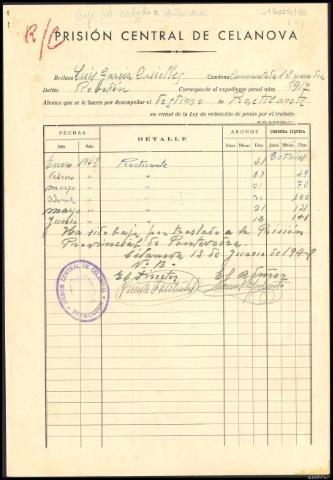 Baja por traslado a Pontevedra
R/C
PRISIÓN CENTRAL DE CELANOVA
Recluso Luis García Condena Conmutada 12 años 1 día
Delito Rebelión Corresponde al expediente penal núm. 8917
Abonos que se le hacen por desempeñar el Destino de Practicante
en virtud de la Ley de redención de penas por el trabajo.
FECHAS DETALLE ABONOS CONDENA LÍQUIDA
Mes Año Años Meses Días Años Meses Días
Enero 1942 Practicante 21
Febrero " " 49
marzo " " 21 70
Abril " " 30 100
mayo " " 21 121
Junio " "
Ha sido baja por traslado a la Prisión
Provincial de Pontevedra
Celanova 13 de Junio de 1942
Vº Bº
El Director El Admor
PRISIÓN CENTRAL DE CELANOVA
DIRECCIÓN